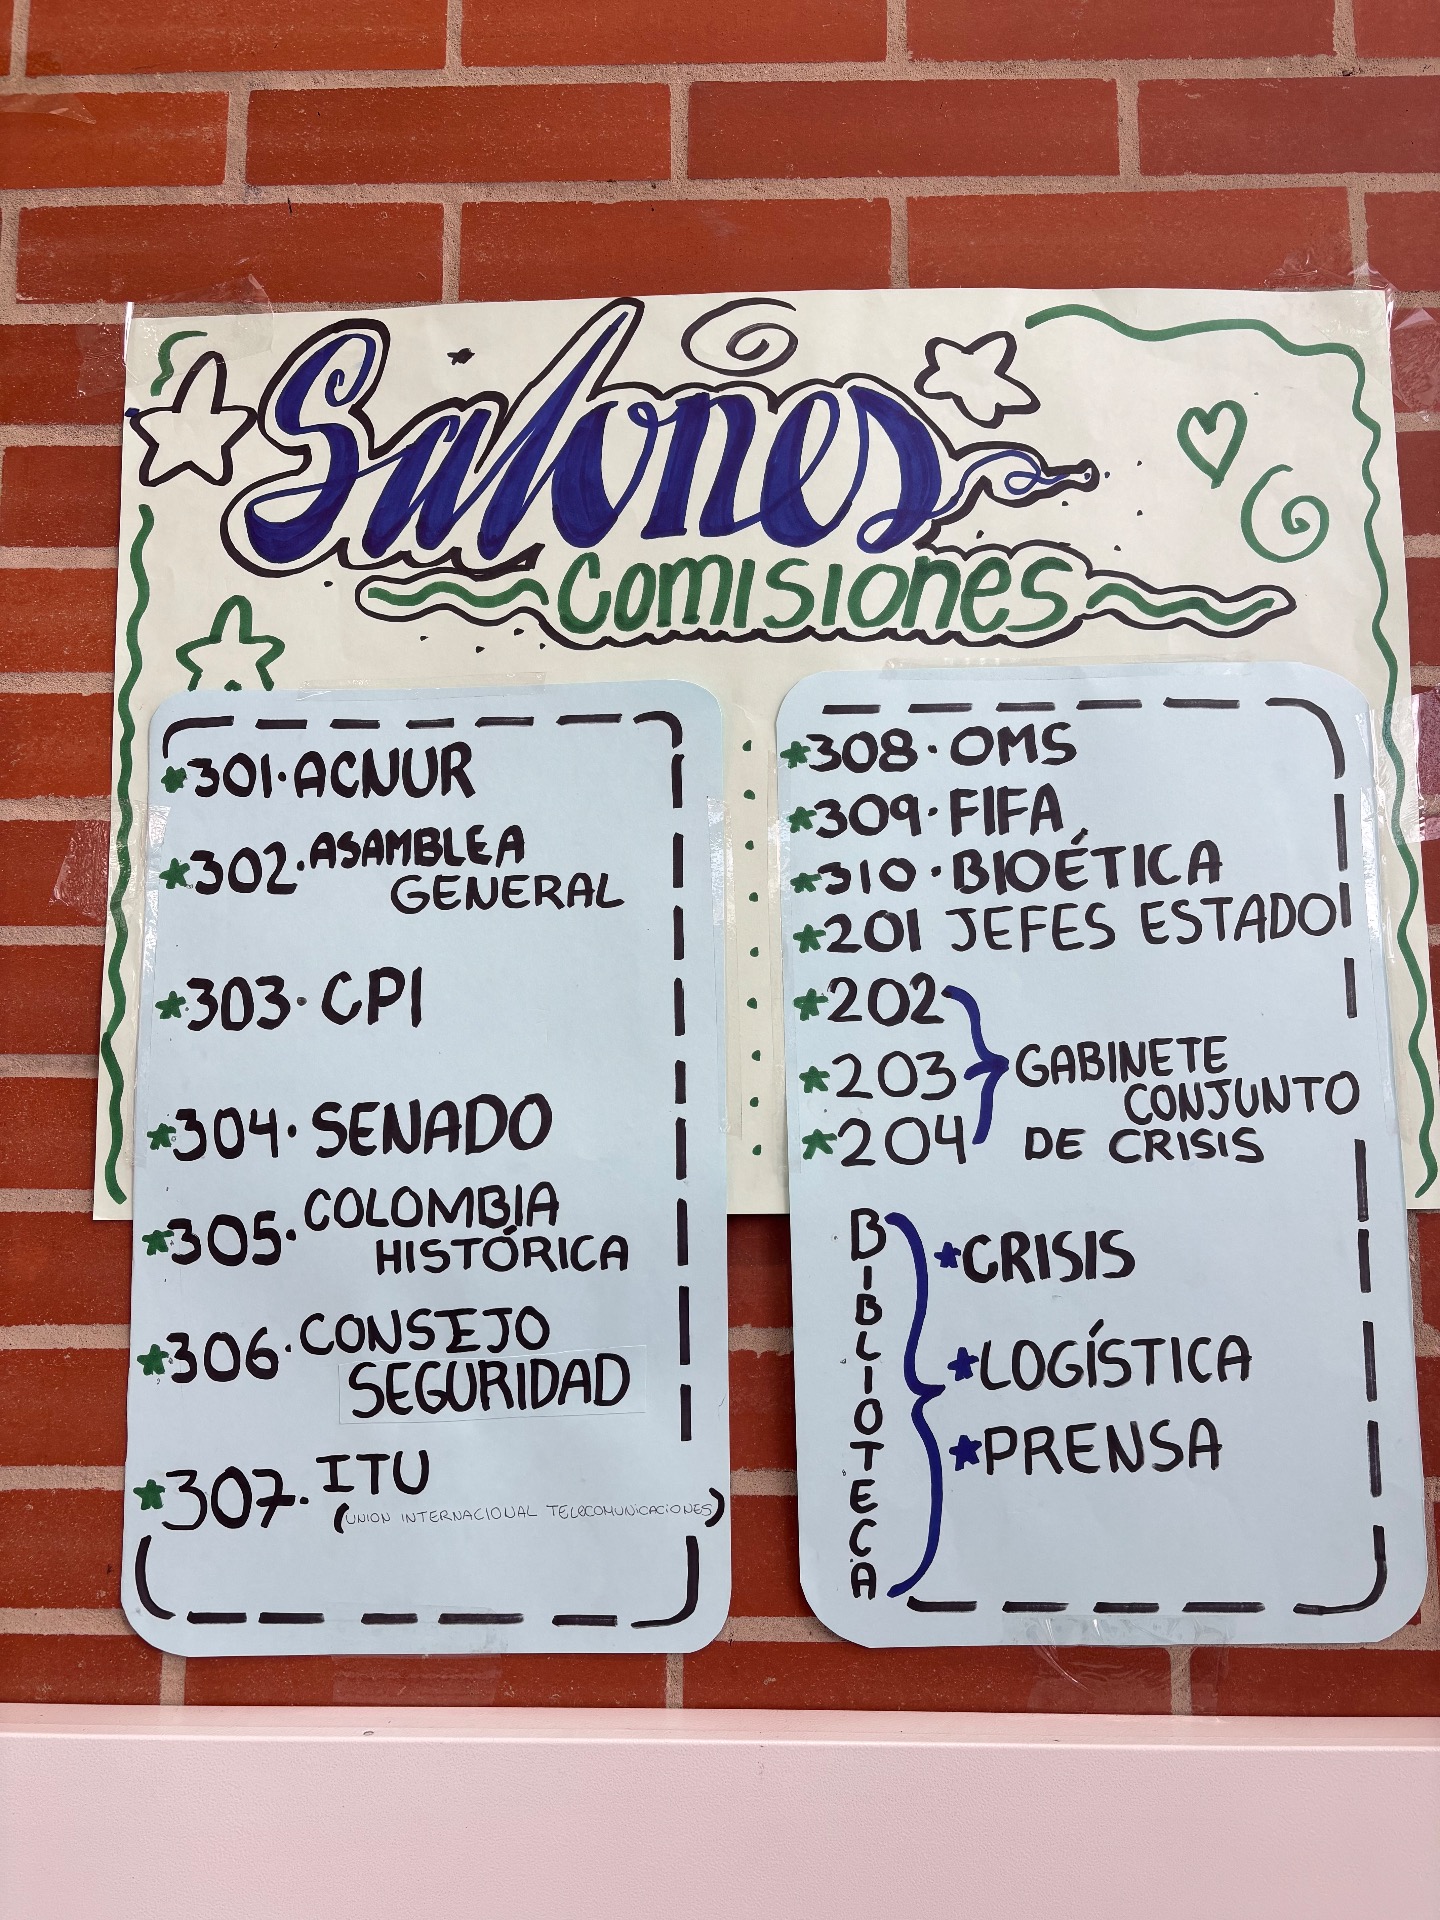 Salones
Comisiones
301. ACNUR
302. ASAMBLEA
GENERAL
303. CPI
304. SENADO
305. COLOMBIA
HISTÓRICA
306. CONSEJO
SEGURIDAD
307. ITU
(UNION INTERNACIONAL TELECOMUNICACIONES)
308. OMS
309. FIFA
310. BIOÉTICA
201 JEFES ESTADO
202
203
204
GABINETE
CONJUNTO
DE CRISIS
BIBLIOTECA
CRISIS
LOGÍSTICA
PRENSA